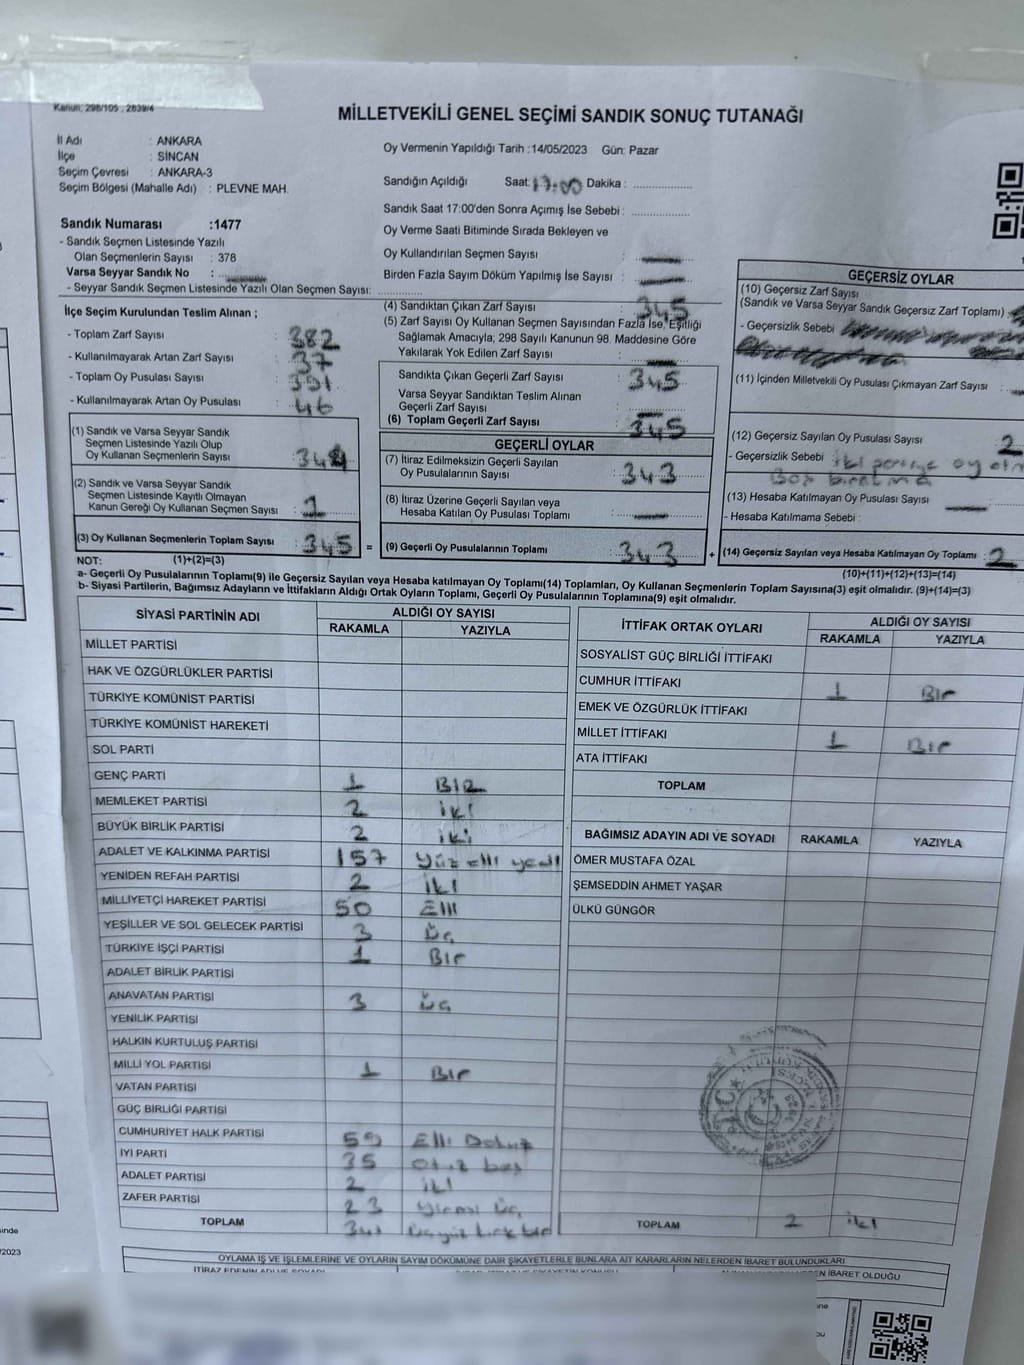 Kanun: 298/105 : 2839/4
MİLLETVEKİLİ GENEL SEÇİMİ SANDIK SONUÇ TUTANAĞI
İl Adı : ANKARA
İlçe : SİNCAN
Seçim Çevresi : ANKARA-3
Seçim Bölgesi (Mahalle Adı) : PLEVNE MAH.
Sandık Numarası :1477
- Sandık Seçmen Listesinde Yazılı
Olan Seçmenlerin Sayısı : 378
Varsa Seyyar Sandık No :
- Seyyar Sandık Seçmen Listesinde Yazılı Olan Seçmen Sayısı:
Oy Vermenin Yapıldığı Tarih :14/05/2023 Gün: Pazar
Sandığın Açıldığı Saat: 17:00 Dakika :
Sandık Saat 17:00'den Sonra Açımış İse Sebebi :
Oy Verme Saati Bitiminde Sırada Bekleyen ve
Oy Kullandırılan Seçmen Sayısı : —
Birden Fazla Sayım Döküm Yapılmış İse Sayısı : —
İlçe Seçim Kurulundan Teslim Alınan ;
- Toplam Zarf Sayısı : 382
- Kullanılmayarak Artan Zarf Sayısı : 37
- Toplam Oy Pusulası Sayısı : 391
- Kullanılmayarak Artan Oy Pusulası : 46
(1) Sandık ve Varsa Seyyar Sandık
Seçmen Listesinde Yazılı Olup
Oy Kullanan Seçmenlerin Sayısı : 344
(2) Sandık ve Varsa Seyyar Sandık
Seçmen Listesinde Kayıtlı Olmayan
Kanun Gereği Oy Kullanan Seçmen Sayısı : 1
(3) Oy Kullanan Seçmenlerin Toplam Sayısı : 345 =
(4) Sandıktan Çıkan Zarf Sayısı : 345
(5) Zarf Sayısı Oy Kullanan Seçmen Sayısından Fazla İse, Eşitliği
Sağlamak Amacıyla; 298 Sayılı Kanunun 98. Maddesine Göre
Yakılarak Yok Edilen Zarf Sayısı : —
Sandıkta Çıkan Geçerli Zarf Sayısı : 345
Varsa Seyyar Sandıktan Teslim Alınan
Geçerli Zarf Sayısı : —
(6) Toplam Geçerli Zarf Sayısı : 345
GEÇERLİ OYLAR
(7) İtiraz Edilmeksizin Geçerli Sayılan
Oy Pusulalarının Sayısı : 343
(8) İtiraz Üzerine Geçerli Sayılan veya
Hesaba Katılan Oy Pusulası Toplamı : —
(9) Geçerli Oy Pusulalarının Toplamı : 343 +
GEÇERSİZ OYLAR
(10) Geçersiz Zarf Sayısı
(Sandık ve Varsa Seyyar Sandık Geçersiz Zarf Toplamı)
- Geçersizlik Sebebi
(11) İçinden Milletvekili Oy Pusulası Çıkmayan Zarf Sayısı :
(12) Geçersiz Sayılan Oy Pusulası Sayısı : 2
- Geçersizlik Sebebi : iki partiye oy
Boş bırakma
(13) Hesaba Katılmayan Oy Pusulası Sayısı : —
- Hesaba Katılmama Sebebi :
(14) Geçersiz Sayılan veya Hesaba Katılmayan Oy Toplamı : 2
NOT: (1)+(2)=(3)
(10)+(11)+(12)+(13)=(14)
a- Geçerli Oy Pusulalarının Toplamı(9) ile Geçersiz Sayılan veya Hesaba katılmayan Oy Toplamı(14) Toplamları, Oy Kullanan Seçmenlerin Toplam Sayısına(3) eşit olmalıdır. (9)+(14)=(3)
b- Siyasi Partilerin, Bağımsız Adayların ve İttifakların Aldığı Ortak Oyların Toplamı, Geçerli Oy Pusulalarının Toplamına(9) eşit olmalıdır.
SİYASİ PARTİNİN ADI ALDIĞI OY SAYISI
RAKAMLA YAZIYLA
MİLLET PARTİSİ
HAK VE ÖZGÜRLÜKLER PARTİSİ
TÜRKİYE KOMÜNİST PARTİSİ
TÜRKİYE KOMÜNİST HAREKETİ
SOL PARTİ
GENÇ PARTİ 1 BİR
MEMLEKET PARTİSİ 2 iki
BÜYÜK BİRLİK PARTİSİ 2 iki
ADALET VE KALKINMA PARTİSİ 157 Yüz elli yedi
YENİDEN REFAH PARTİSİ 2 iki
MİLLİYETÇİ HAREKET PARTİSİ 50 Elli
YEŞİLLER VE SOL GELECEK PARTİSİ 3 Üç
TÜRKİYE İŞÇİ PARTİSİ 1 Bir
ADALET BİRLİK PARTİSİ
ANAVATAN PARTİSİ 3 Üç
YENİLİK PARTİSİ
HALKIN KURTULUŞ PARTİSİ
MİLLİ YOL PARTİSİ 1 Bir
VATAN PARTİSİ
GÜÇ BİRLİĞİ PARTİSİ
CUMHURİYET HALK PARTİSİ 59 Elli Dokuz
İYİ PARTİ 35 Otuz beş
ADALET PARTİSİ 2 iki
ZAFER PARTİSİ 23 Yirmi üç
TOPLAM 341 Üçyüz kırk bir
İTTİFAK ORTAK OYLARI ALDIĞI OY SAYISI
RAKAMLA YAZIYLA
SOSYALİST GÜÇ BİRLİĞİ İTTİFAKI
CUMHUR İTTİFAKI 1 Bir
EMEK VE ÖZGÜRLÜK İTTİFAKI
MİLLET İTTİFAKI 1 Bir
ATA İTTİFAKI
TOPLAM
BAĞIMSIZ ADAYIN ADI VE SOYADI RAKAMLA YAZIYLA
ÖMER MUSTAFA ÖZAL
ŞEMSEDDİN AHMET YAŞAR
ÜLKÜ GÜNGÖR
TOPLAM 2 iki
OYLAMA İŞ VE İŞLEMLERİNE VE OYLARIN SAYIM DÖKÜMÜNE DAİR ŞİKAYETLERLE BUNLARA AİT KARARLARIN NELERDEN İBARET BULUNDUKLARI
İTİRAZ EDENİN ADI VE SOYADI
İBARET OLDUĞU